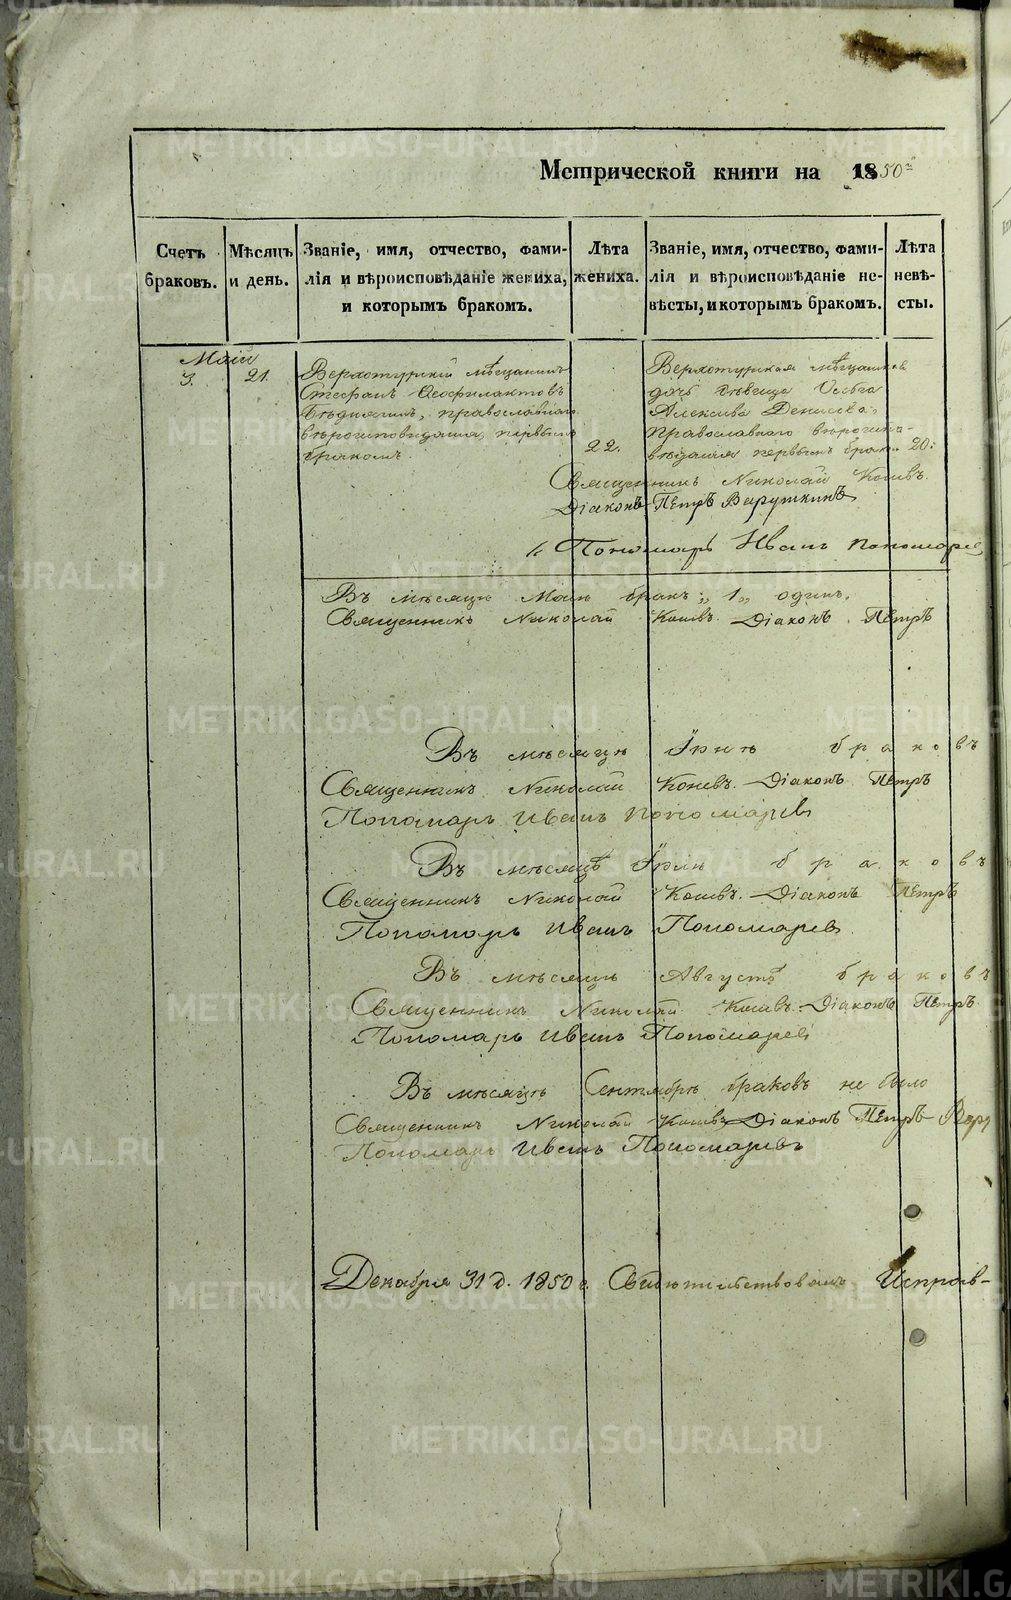 Метрической книги на 1850й
Счетъ браковъ.
Мѣсяцъ и день.
Званіе, имя, отчество, фами-
лія и вѣроисповѣданіе жениха,
и которымъ бракомъ.
Лѣта жениха.
Званіе, имя, отчество, фами-
лія и вѣроисповѣданіе не-
вѣсты, и которымъ бракомъ.
Лѣта невѣ-
сты.
Маій
3. 21.
Верхотурскій мѣщанинъ
Стефанъ Феофилактовъ
православнаго
вѣроисповѣданія, первымъ
бракомъ.
22.
Верхотурская мѣщанская
дочь дѣвица
Алексѣева Денисова,
православнаго вѣроиспо-
вѣданія первымъ брако. 20:
Священникъ Николай Коневъ.
Діаконъ Петръ Варушкинъ
Пономарь Иванъ Пономарев
Въ мѣсяцѣ Маіи бракъ „1„ одинъ.
Священникъ Николай Коневъ. Діаконъ Петръ
Въ мѣсяцѣ Іюнѣ браковъ
Священникъ Николай Коневъ. Діаконъ Петръ
Пономарь Иванъ Пономарев
Въ мѣсяцѣ Іюлѣ браковъ
Священникъ Николай Коневъ. Діаконъ Петръ
Пономарь Иванъ Пономарев
Въ мѣсяцѣ Августѣ браковъ
Священникъ Николай Коневъ. Діаконъ Петръ
Пономарь Иванъ Пономарев
Въ мѣсяцѣ Сентябрѣ браковъ не было
Священникъ Николай Коневъ Діаконъ Петръ Вару
Пономарь Иванъ Пономаревъ
Декабря 31 д. 1850 г. Свидѣтельствовалъ Исправ-
METRIKI.GASO-URAL.RU